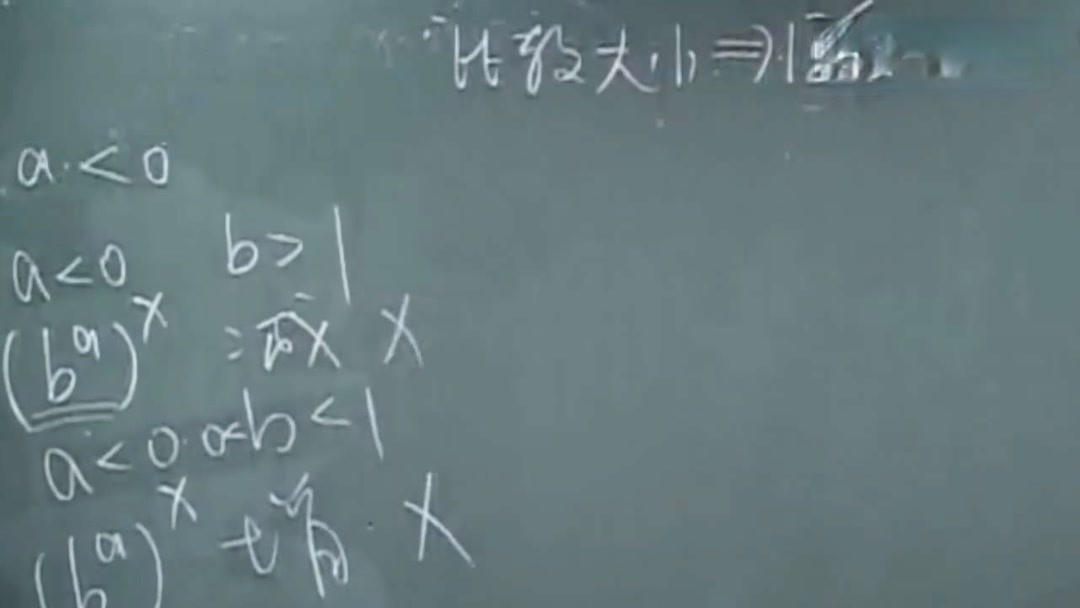 比较大小⇒
a<0
a<0 b>1
(b^a)^x = X
a<0 0<b<1
(b^a)^x X